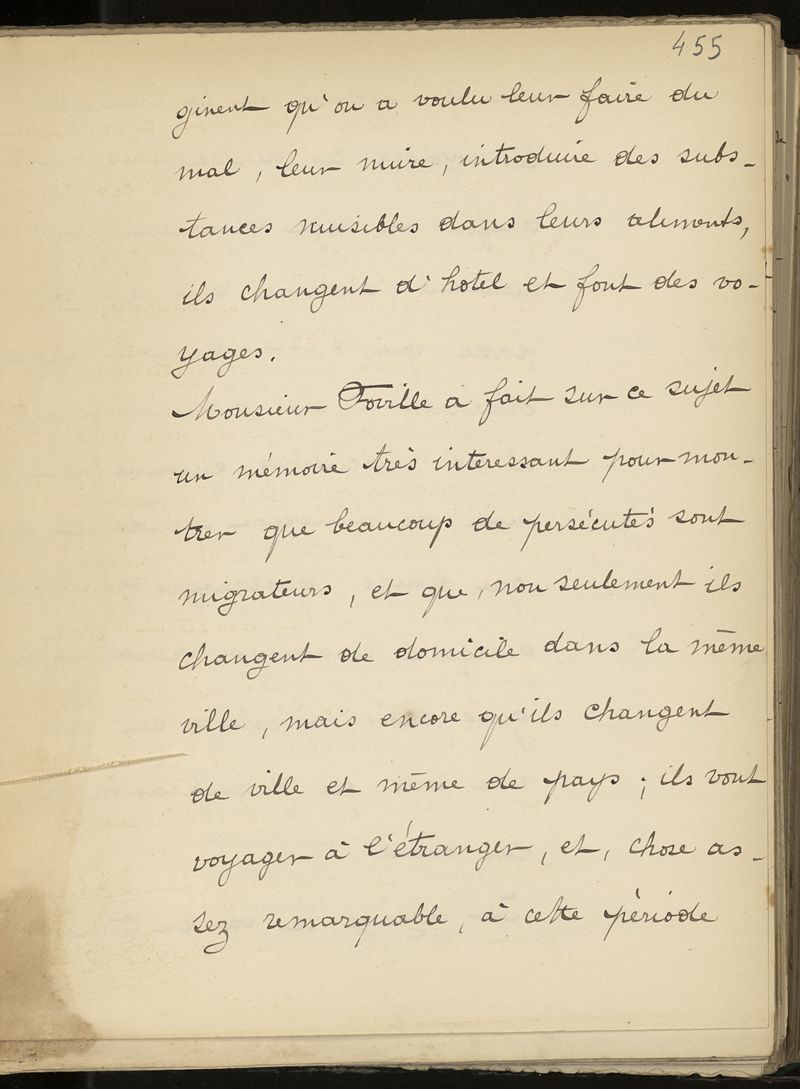 455
ginent qu'on a voulu leur faire du
mal, leur nuire, introduire des subs-
tances nuisibles dans leurs aliments,
ils changent d'hotel et font des vo-
yages.
Monsieur Foville a fait sur ce sujet
un mémoire très interessant pour mon-
trer que beaucoup de persécutés sont
migrateurs, et que, non seulement ils
changent de domicile dans la même
ville, mais encore qu'ils changent
de ville et même de pays ; ils vont
voyager à l'étranger, et, chose as-
sez remarquable, à cette période